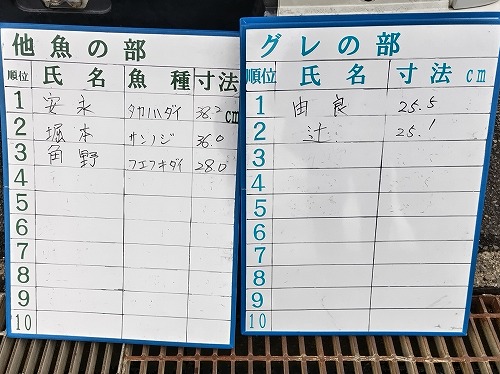 他魚の部
順位 氏名 魚種 寸法 cm
1 安永 タカノハダイ 38.2
2 堀本 サンノジ 36.0
3 角野 フエフキダイ 28.0
4
5
6
7
8
9
10
グレの部
順位 氏名 寸法 cm
1 由良 25.5
2 辻 25.1
3
4
5
6
7
8
9
10